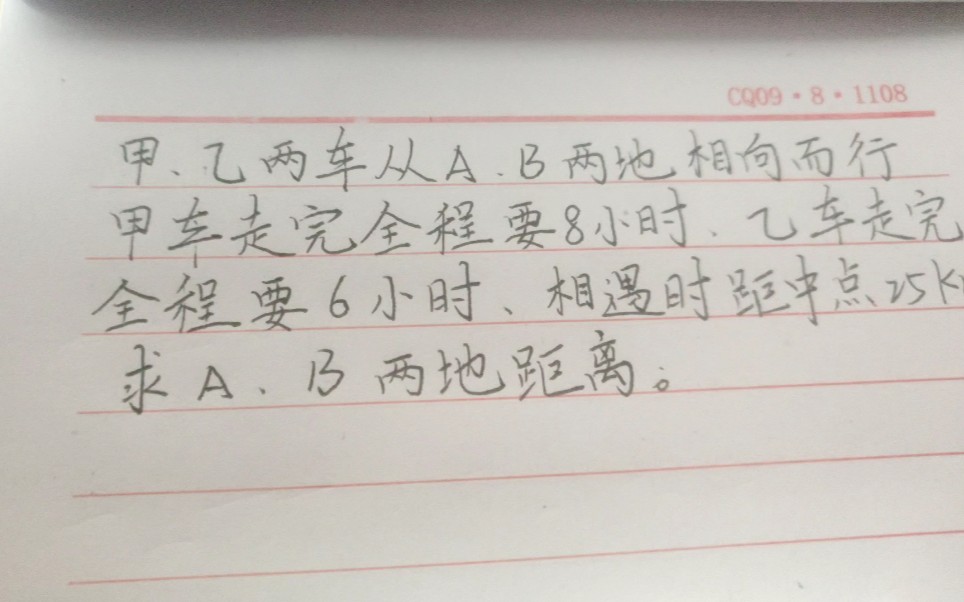 CQ09·8·1108
甲、乙两车从A、B两地相向而行
甲车走完全程要8小时、乙车走完
全程要6小时、相遇时距中点25K
求A、B两地距离。